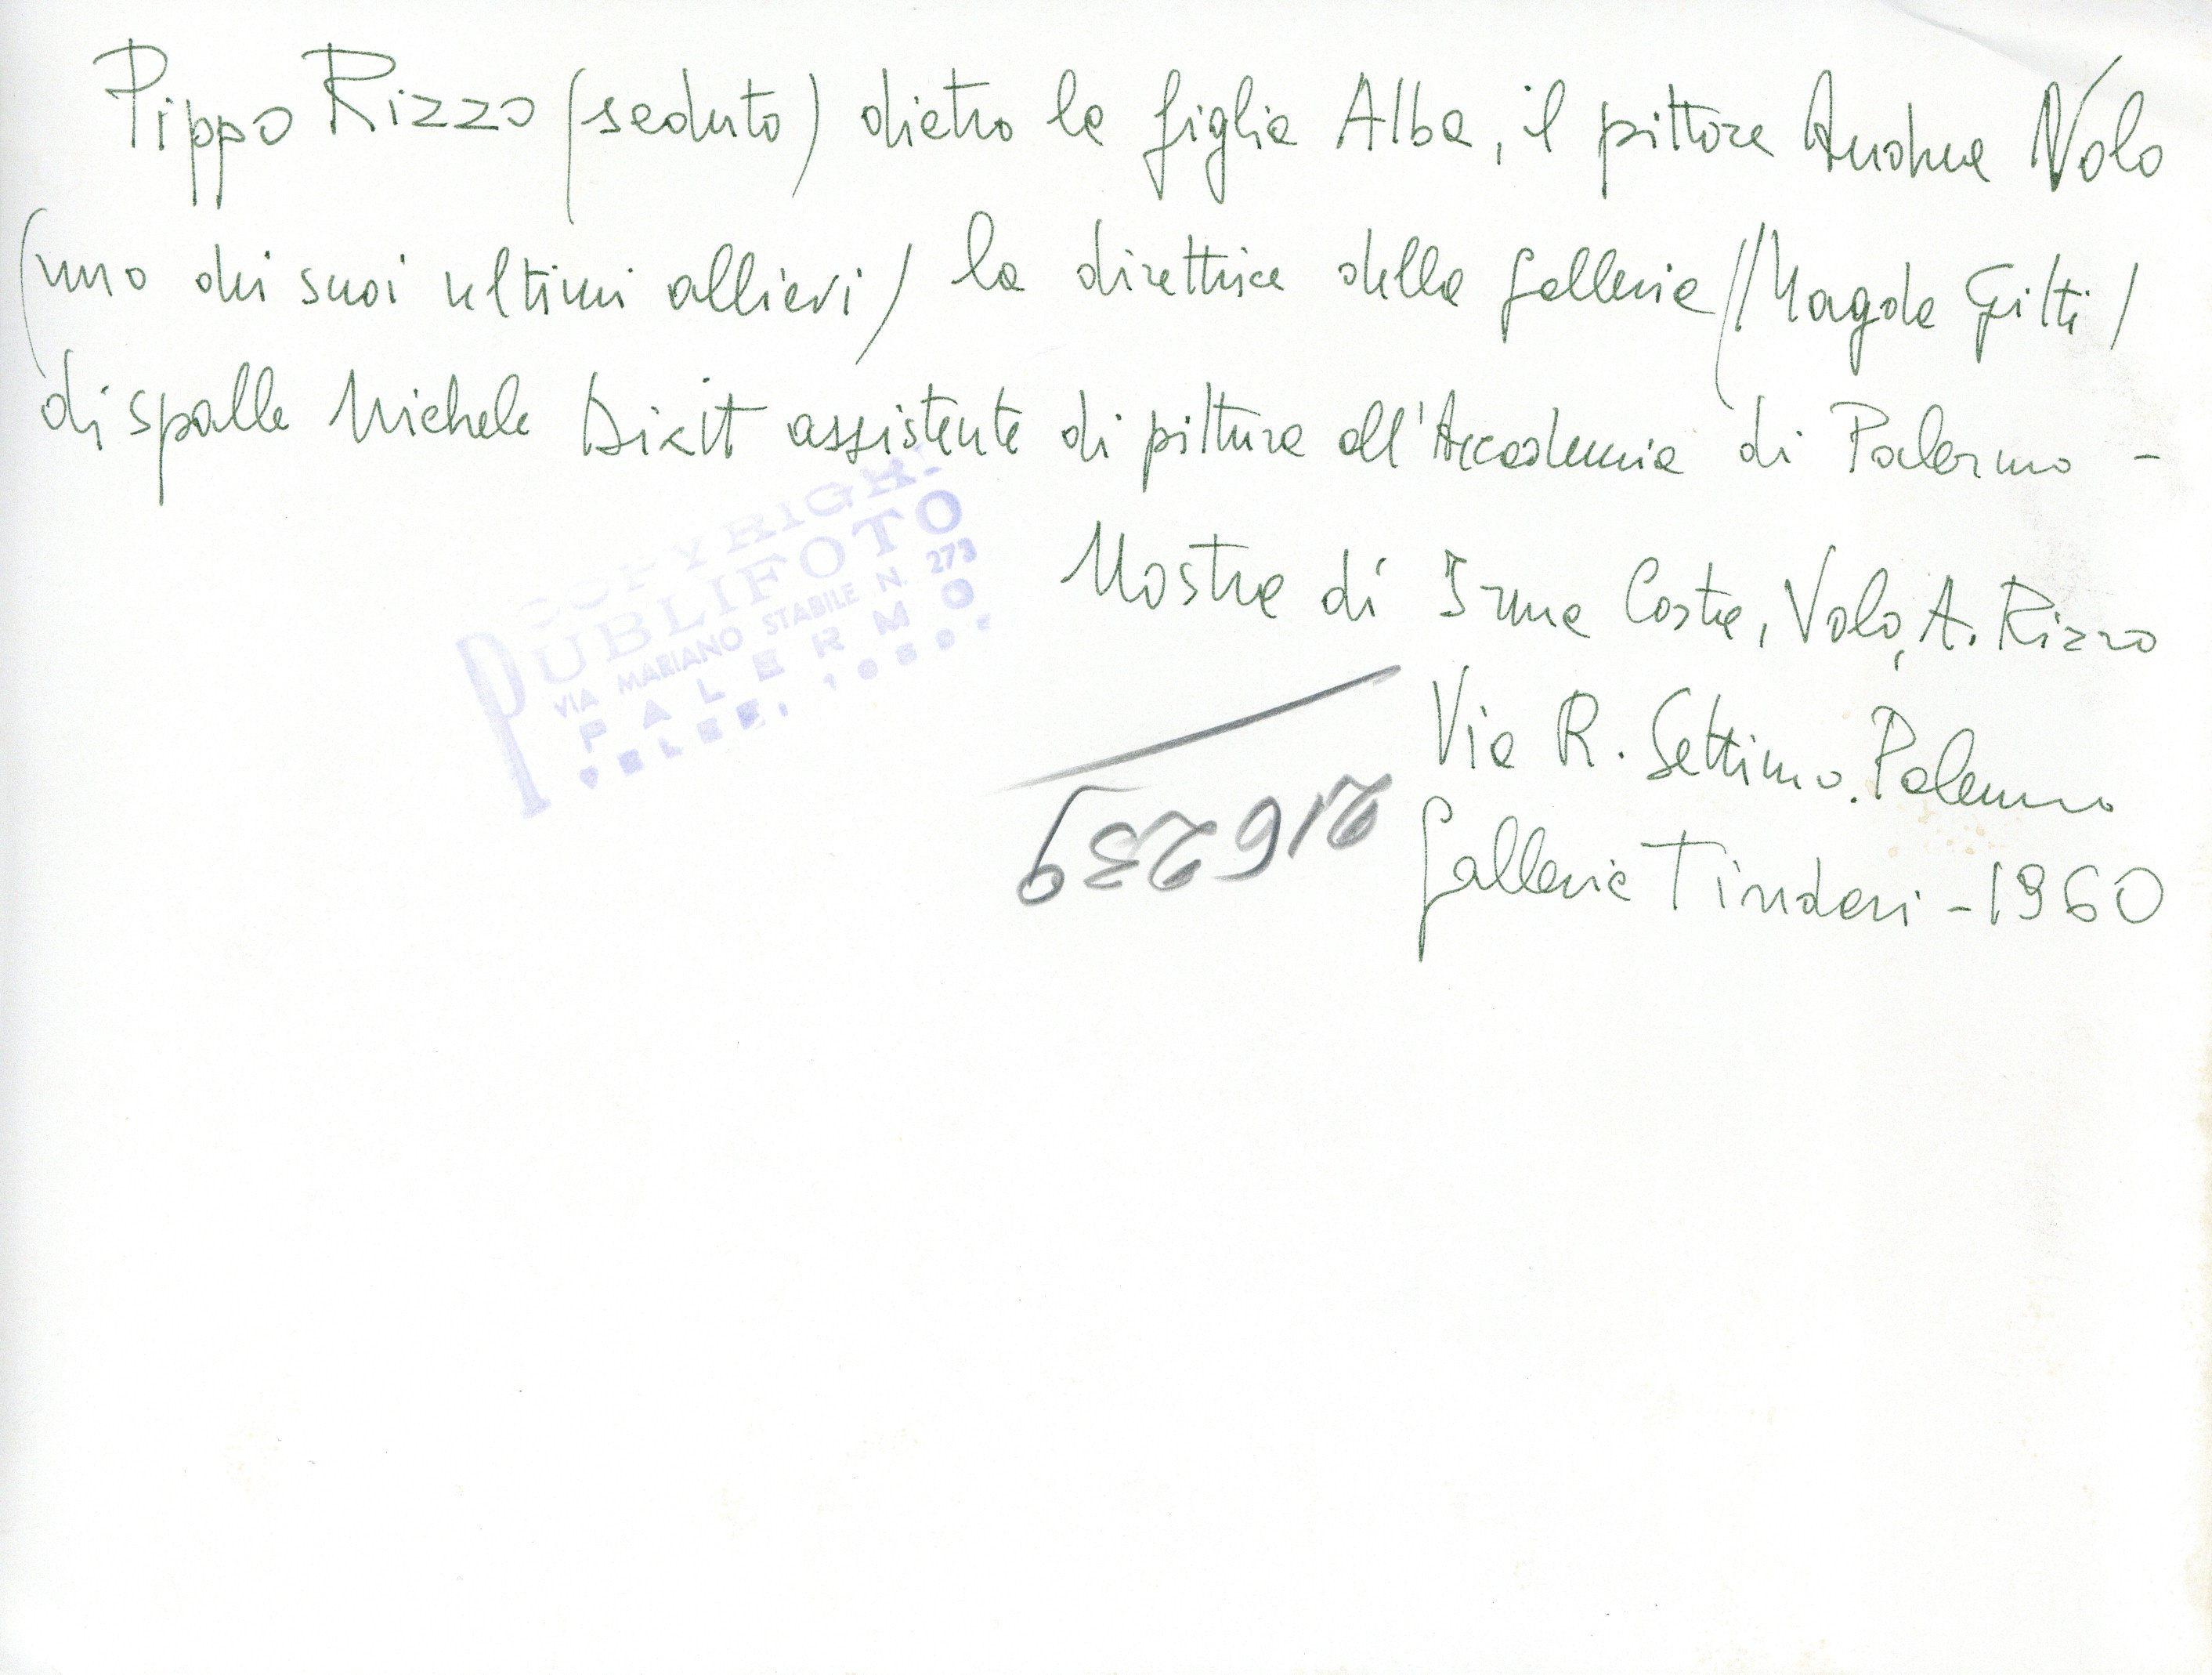 Pippo Rizzo (seduto) dietro la figlia Alba, il pittore Andrea Volo
(uno dei suoi ultimi allievi) la direttrice della galleria (Magda Gitti)
di spalle Michele Dixit assistente di pittura all'Accademia di Palermo -
COPYRIGHT
PUBLIFOTO
VIA MARIANO STABILE N. 273
PALERMO
Mostra di Irma Costa, Volo, A. Rizzo
Via R. Settimo. Palermo
Galleria Tindari - 1960
216239